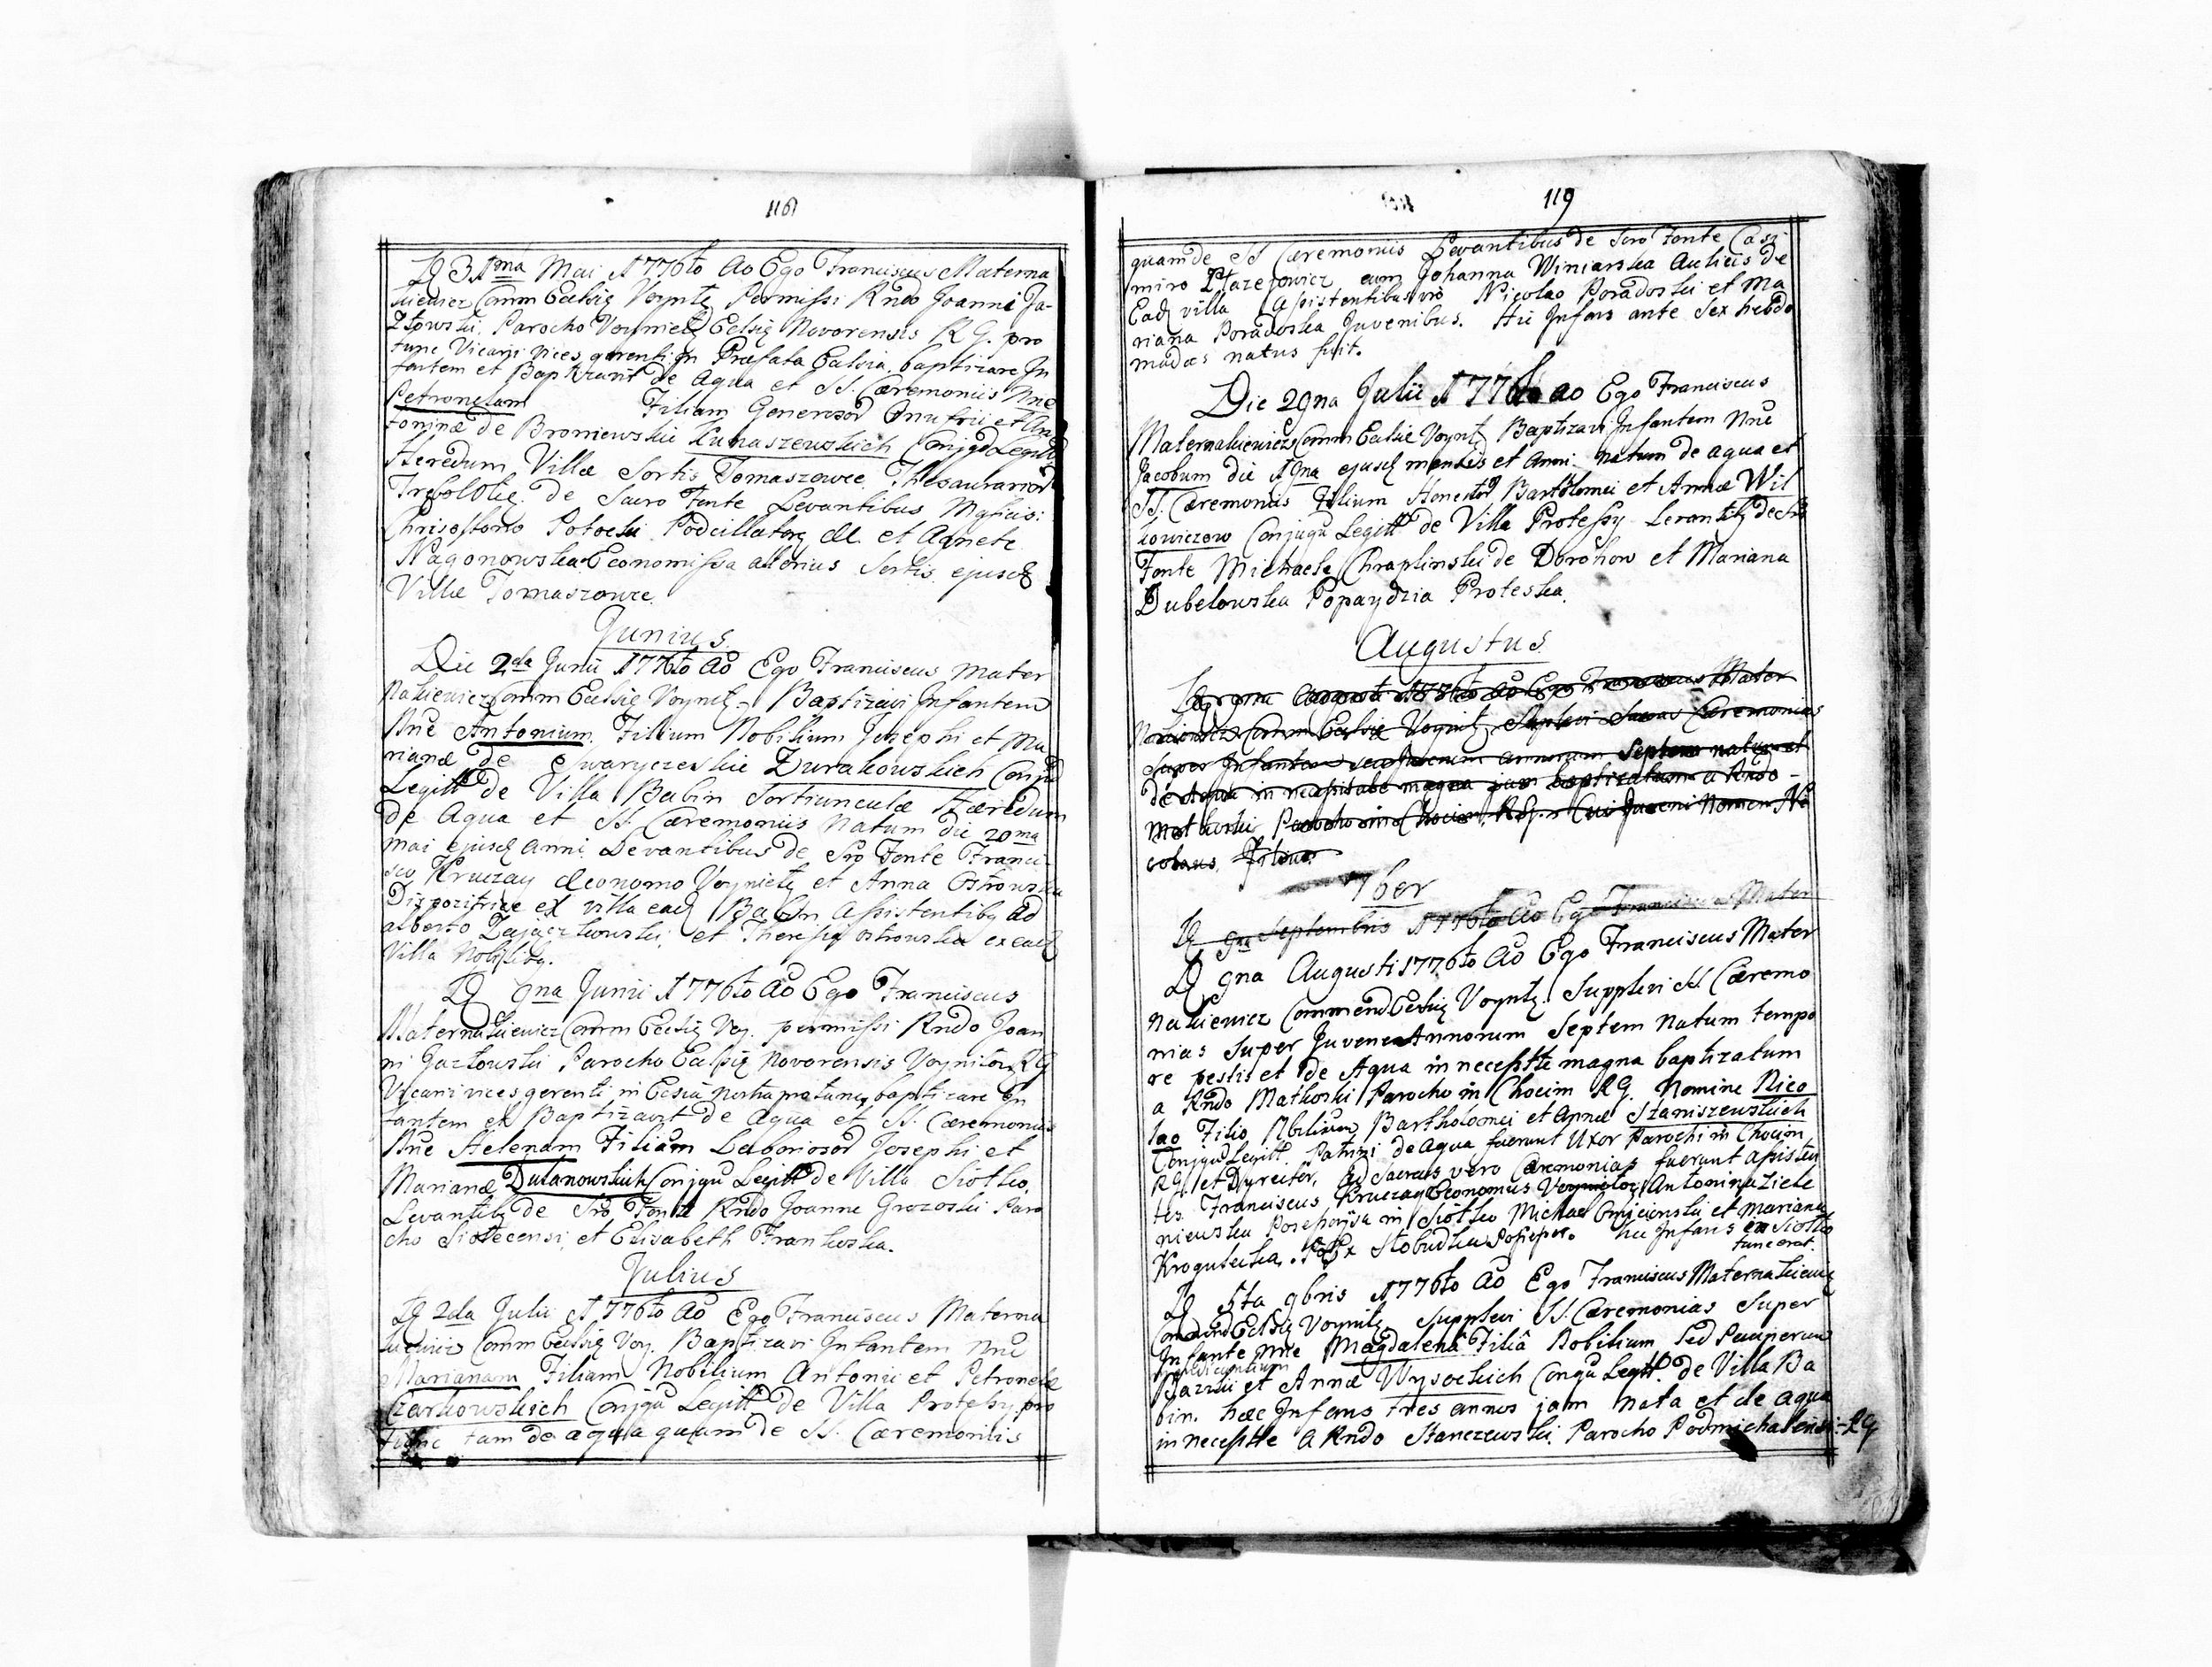 116
D 31ma Mai 1776to Ao Ego Franciscus Materna
kiewicz Comm Ecclsię Voyntę Permissi Rndo Joanni Ja-
złowski Parocho Voynieę Eclsię Novorensis R G. pro
tunc Vicarii vices gerenti In Præfata Eclsia baptizare In
fantem et Baptizavit de Aqua et SS. Cæremoniis Nne
Petronelam Filiam Generosor Onufrii et An
toninæ de Broniewskie Kunaszewskich Conjgu Legitt
Heredum Villæ Sortis Tomaszowce Thesaurarior
de Sacro Fonte Levantibus Mgficis:
Chrisostomo Potocki et Agnete
Nagonowska Economissa alterius Sortis ejusd
Villæ Tomaszowce.
Junius.
Die 2da Junii 1776to Ao Ego Franciscus Mater
nakiewicz Comm Ecclsię Voyntę Baptizavi Infantem
Nne Antonium Filium Nobilium Josephi et Ma
rianæ de Swaryczeskie Zurakowskich Conju
Legitt de Villa Babin Sortiunculæ Hæredum
de Aqua et SS. Cæremoniis natum die 20ma
Mai ejusd anni Levantibus de Sro Fonte Franci
sco Kruczay Œconomo Voynietę et Anna Ostrowska
Dispozitrice ex villa ead Babin Assistentibq Ad
alberto Zajączkowski et Theresia Ostrowska ex ead
Villa Nobilibq.
D 9na Junii 1776to Ao Ego Franciscus
Maternakiewicz Comm Ecclsię Voy. permissi Rndo Joan
ni Jazłowski Parocho Ecclsię Novorensis Voynilow RG
Vicarii vices gerenti in Eclsia nostra protunc baptizare In
fantem et Baptizavit de Aqua et SS. Cæremoniis
Nne Helenam Filiam Laboriosor Josephi et
Marianæ Dulanowskich Conjgu Legitt de Villa Siołko,
Levantibq de Sro Fonte Rndo Joanne Grozoski Paro
cho Siołecensi et Elisabeth Frankoska.
Julius
D 2da Julii 1776to Ao Ego Franciscus Materna
kiewicz Comm Ecclsię Voy. Baptizavi Infantem Nne
Marianam Filiam Nobilium Antonii et Petronele
Czarkowskich Conjgu Legitt de Villa Protessy pro
tunc tam de aqua quam de SS. Cæremoniis
119
quam de SS Cæremoniis Levantibus de Sero Fonte Casi
miro cum Johanna Winiarska Aulicis de
Ead villa Assistentibus vro Nicolao Poradoski et Ma
riana Poradoska Juvenibus. Hic Infans ante Sex hebdo
madas natus fuit.
Die 29na Julii 1776to ao Ego Franciscus
Maternakiewicz Comm Ecclsie Voyntę Baptizavi Infantem Nne
Jacobum die 19na ejusd mensis et Anni natum de aqua et
SS. Cæremoniis Filium Honestor Bartolomei et Annæ Wil
kowiczow Conjugu Legitt de Villa Protessy Levantibq de Sro
Fonte Michaele Chraplinski de Dorohow et Mariana
Dubelowska Popaydzia Proteska.
Augustus
D 9na Augusti 1776to Ao Ego Franciscus Mater
nakiewicz Comm Eclsię Voyntę Suplevi Sacras Cæremonias
super Infantem seu Juvenem annorum Septem natum et
de Aqua in necessitate magna jam baptizatum a Rndo
Matkoski Parocho in Chocim RG. Cui Juveni Nomen Ni
colaus Filius
7ber
D 9na Septembris 1776to Ao Ego Franciscus Mater
D 9na Augusti 1776to Ao Ego Franciscus Mater
nakiewicz Commend Ecclsię Voyntę. Supplevi SS. Cæremo
nias Super Juvene Annorum Septem natum tempo
re pestis et de Aqua in necesstte magna baptizatum
a Rndo Matkoski Parocho in Chocim RG. Nomine Nico
lao Filio Nbilium Bartholomei et Annæ Staniszewskich
Conjgu Legitt Patrini de Aqua fuerunt Uxor Parochi in Chocim
RG. et Dyreitor, ad Sacras vero Cæremonias fuerunt Assisten
tes Franciscus Kruczay Economus Voynietoę Antonina Ziele
niewska Possessorissa in Siołko Michael et Mariana
Krogulecka, Hic Infans in Siołko
tunc erat.
D 5ta 9bris 1776to Ao Ego Franciscus Maternakiewicz
Commend Eclsię Voyntę Supplevi SS. Cæremonias Super
Infante Nne Magdalenâ Filiâ Nobilium Sed Pauperum
Mendicantium
Bazilii et Annæ Wysockich Congu Legtt. de Villa Ba
bin. hæc Infans tres annos jam nata et de aqua
in necesstte a Rndo Stanczewski Parocho Podmichalensi RG